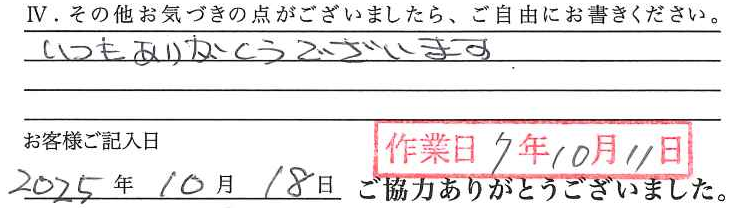 Ⅳ．その他お気づきの点がございましたら、ご自由にお書きください。
いつもありがとうございます
お客様ご記入日
作業日 7年10月11日
2025年10月18日
ご協力ありがとうございました。